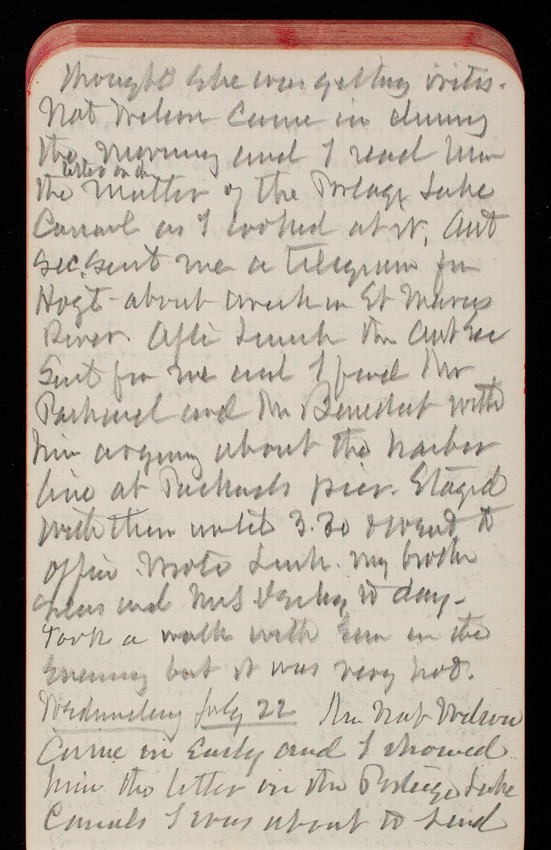 thought she was getting votes.
Nat Wilson came in during
the morning and I read him
letter on the
the matter of the Portage Lake
Canal as I looked at it. Ast
Sec. sent me a telegram from
Hoyt about a wreck in St Marys
River. After lunch the Ast Sec
sent for me and I found Mr
Packard and Mr Benedict with
him arguing about the harbor
line at Packards pier. Stayed
with them until 3.30 & went to
office. Wrote my brother
and Mrs to day.
Took a walk with in the
evening but it was very hot.
Wednesday July 22 Mr Nat Wilson
came in early and I showed
him the letter on the Portage Lake
Canals I was about to send